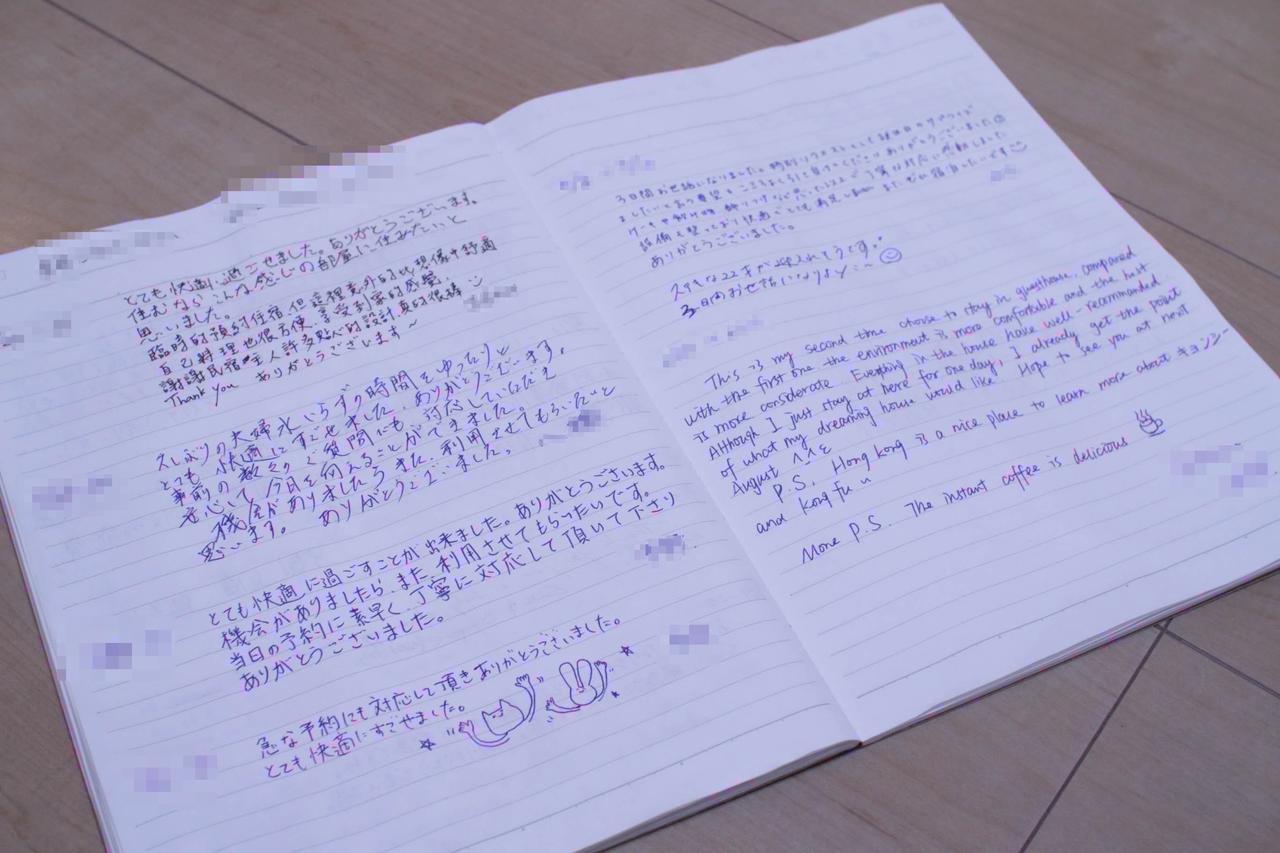 とても快適に過ごせました。ありがとうございます。
住むならこんな感じの部屋に住みたいと
思いました。
臨時的預約住宿,但這裡意外的比想像中舒適
自己料理也很方便,享受到家的感覺。
謝謝民宿主人許多貼心的設計真的很棒
Thank you ありがとうございます～
久しぶりの夫婦水いらずの時間をゆったりと
とても快適にすごせ来した。ありがとうございます。
事前の数々のご質問にも、対応していただき
安心して今日を迎えることができました。
機会がありましたらまた、利用させてもらいたいと
思います。 ありがとうございました。
とても快適に過ごすことが出来ました。ありがとうございます。
機会がありましたら、また利用させてもらったいです。
当日の予約に素早く、丁寧に対応して頂いて下さり
ありがとうございました。
急な予約にも対応して頂きありがとうございました。
とても快適にすごせました。
3日間お世話になりました。
設備も整っており快適で
ありがとうございました。
3日間お世話になりました
This is my second time choose to stay in guesthouse, compared
with the first one the environment is more comfortable and the host
is more considerate. Everything in the house have well-recommanded
Although I just stay at here for one day, I already get the point
of what my dreaming house would like. Hope to see you at next
August ^^
P.S. Hong kong is a nice place to learn more about キョンシー
and kong fu
More P.S. The instant coffee is delicious